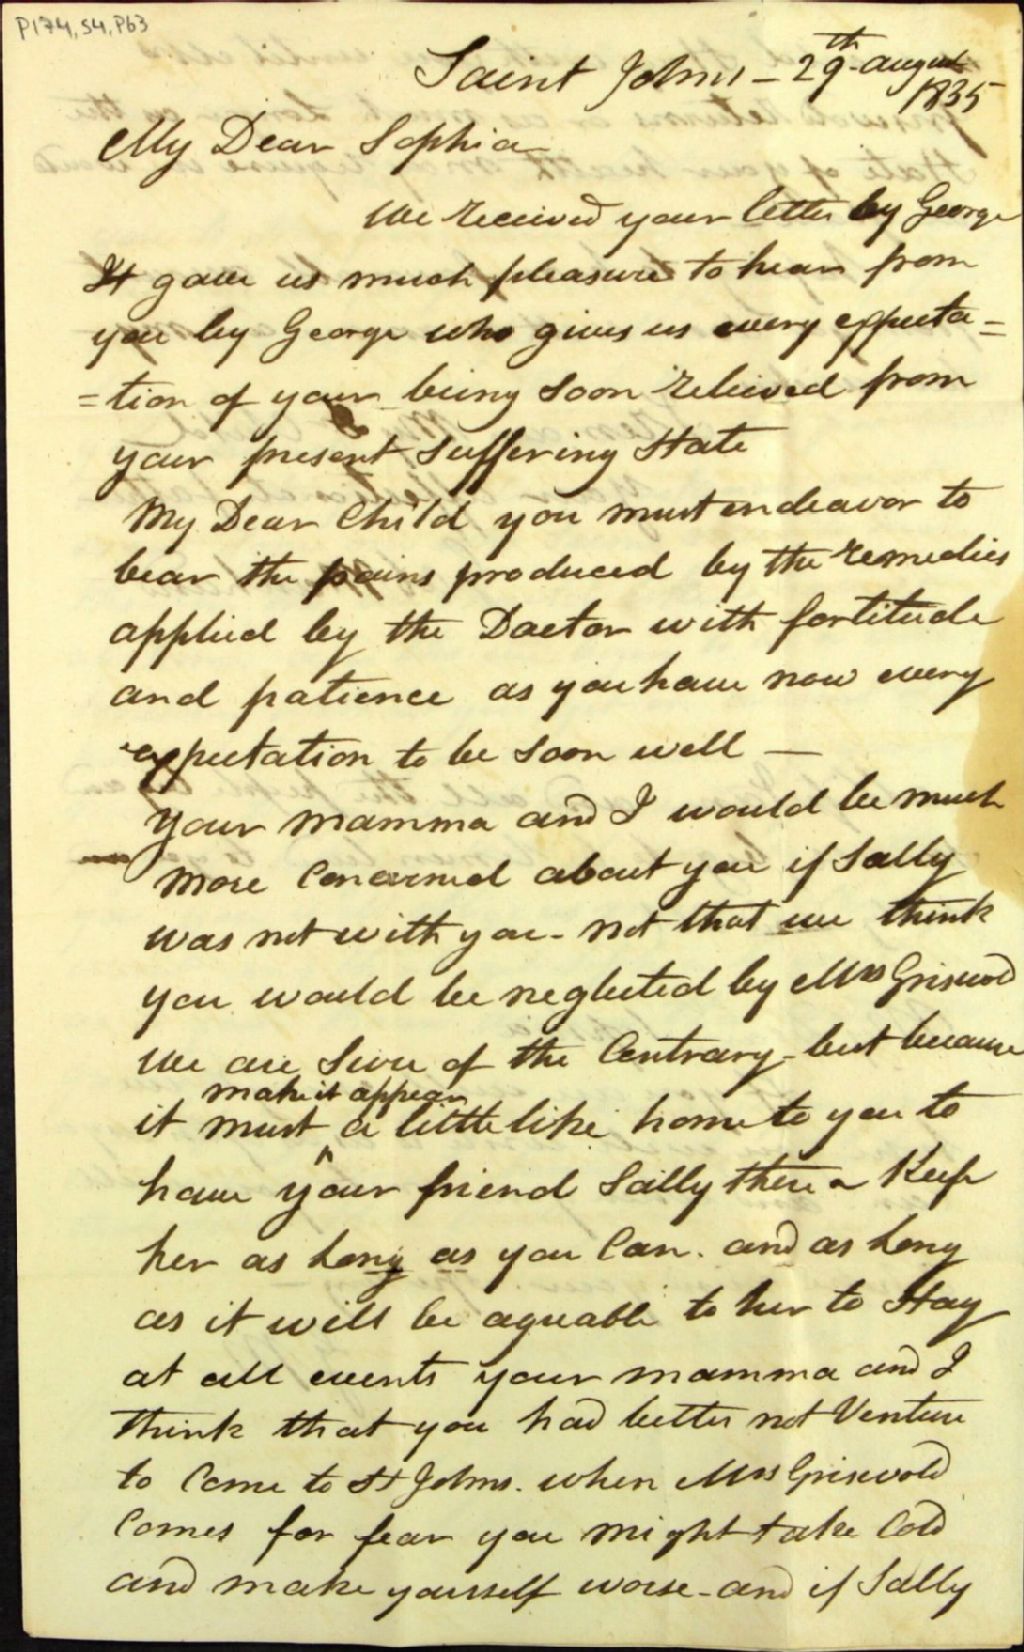 P174,S4,P63
Saint Johns - 29th august
1835
My Dear Sophia
We received your letter by George
It gave us much pleasure to hear from
you by George who gives us every expecta=
=tion of your being soon relieved from
your present suffering State
My Dear Child you must endeavor to
bear the pains produced by the remedies
applied by the Doctor with fortitude
and patience as you have now every
expectation to be soon well —
your mamma and I would be much
more Concerned about you if Sally
was not with you - not that we think
you would be neglected by Mrs Griswold
we are Sure of the Contrary - but because
make it appear
it must ^ a little like home to you to
have your friend Sally there Keep
her as long as you Can. and as long
as it will be agreable to her to Stay
at all events your mamma and I
think that you had better not Venture
to Come to St Johns. when Mrs Griswold
Comes for fear you might take Cold
and make yourself worse - and if Sally